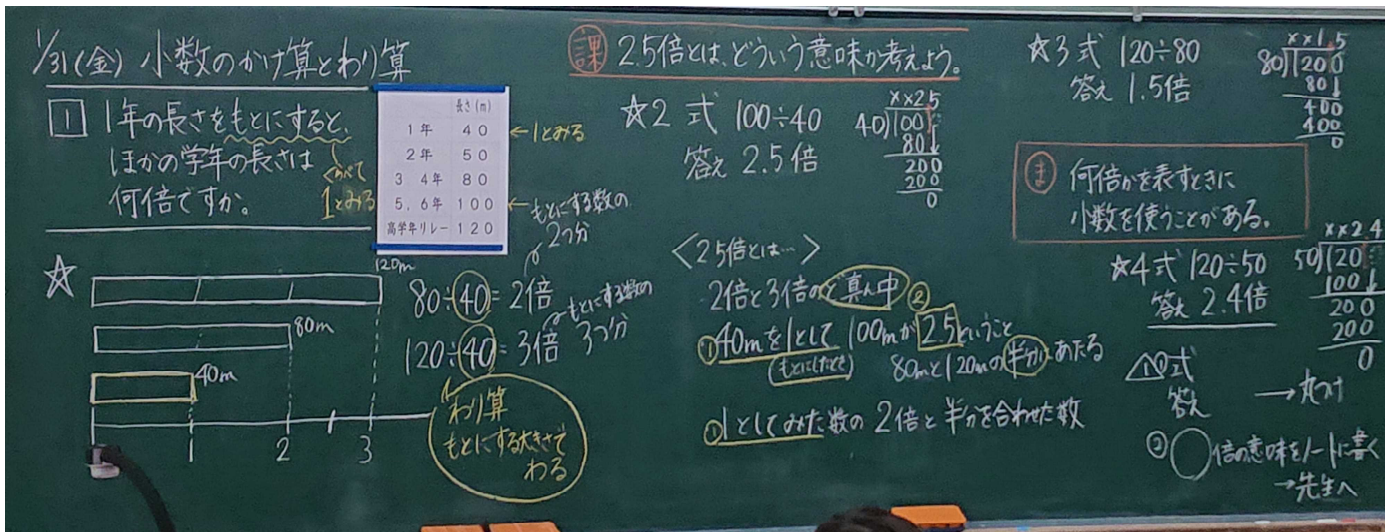 1/31(金) 小数のかけ算とわり算
1 1年の長さをもとにすると、
ほかの学年の長さは
何倍ですか。
くらべて
1とみる
長さ(m)
1年 40
2年 50
3 4年 80
5,6年 100
高学年リレー 120
←1とみる
☆
120m
80m
40m
1 2 3
もとにする数の
2つ分
80÷40=2倍
もとにする数の
3つ分
120÷40=3倍
わり算
もとにする大きさで
わる
課 2.5倍とは、どういう意味か考えよう。
☆2 式 100÷40
答え 2.5倍
××2.5
40)100
80↓
200
200
0
<2.5倍とは…>
2倍と3倍のど真ん中
②
①40mを1として 100mが2.5ということ
(もとにしたとき)
80mと120mの半分にあたる
①1としてみた数の2倍と半分を合わせた数
☆3 式 120÷80
答え 1.5倍
××1.5
80)1200
80↓
400
400
0
ま 何倍かを表すときに
小数を使うことがある。
☆4 式 120÷50
答え 2.4倍
××2.4
50)120
100↓
200
200
0
△①式
答え →丸つけ
②○倍の意味をノートに書く
→先生へ